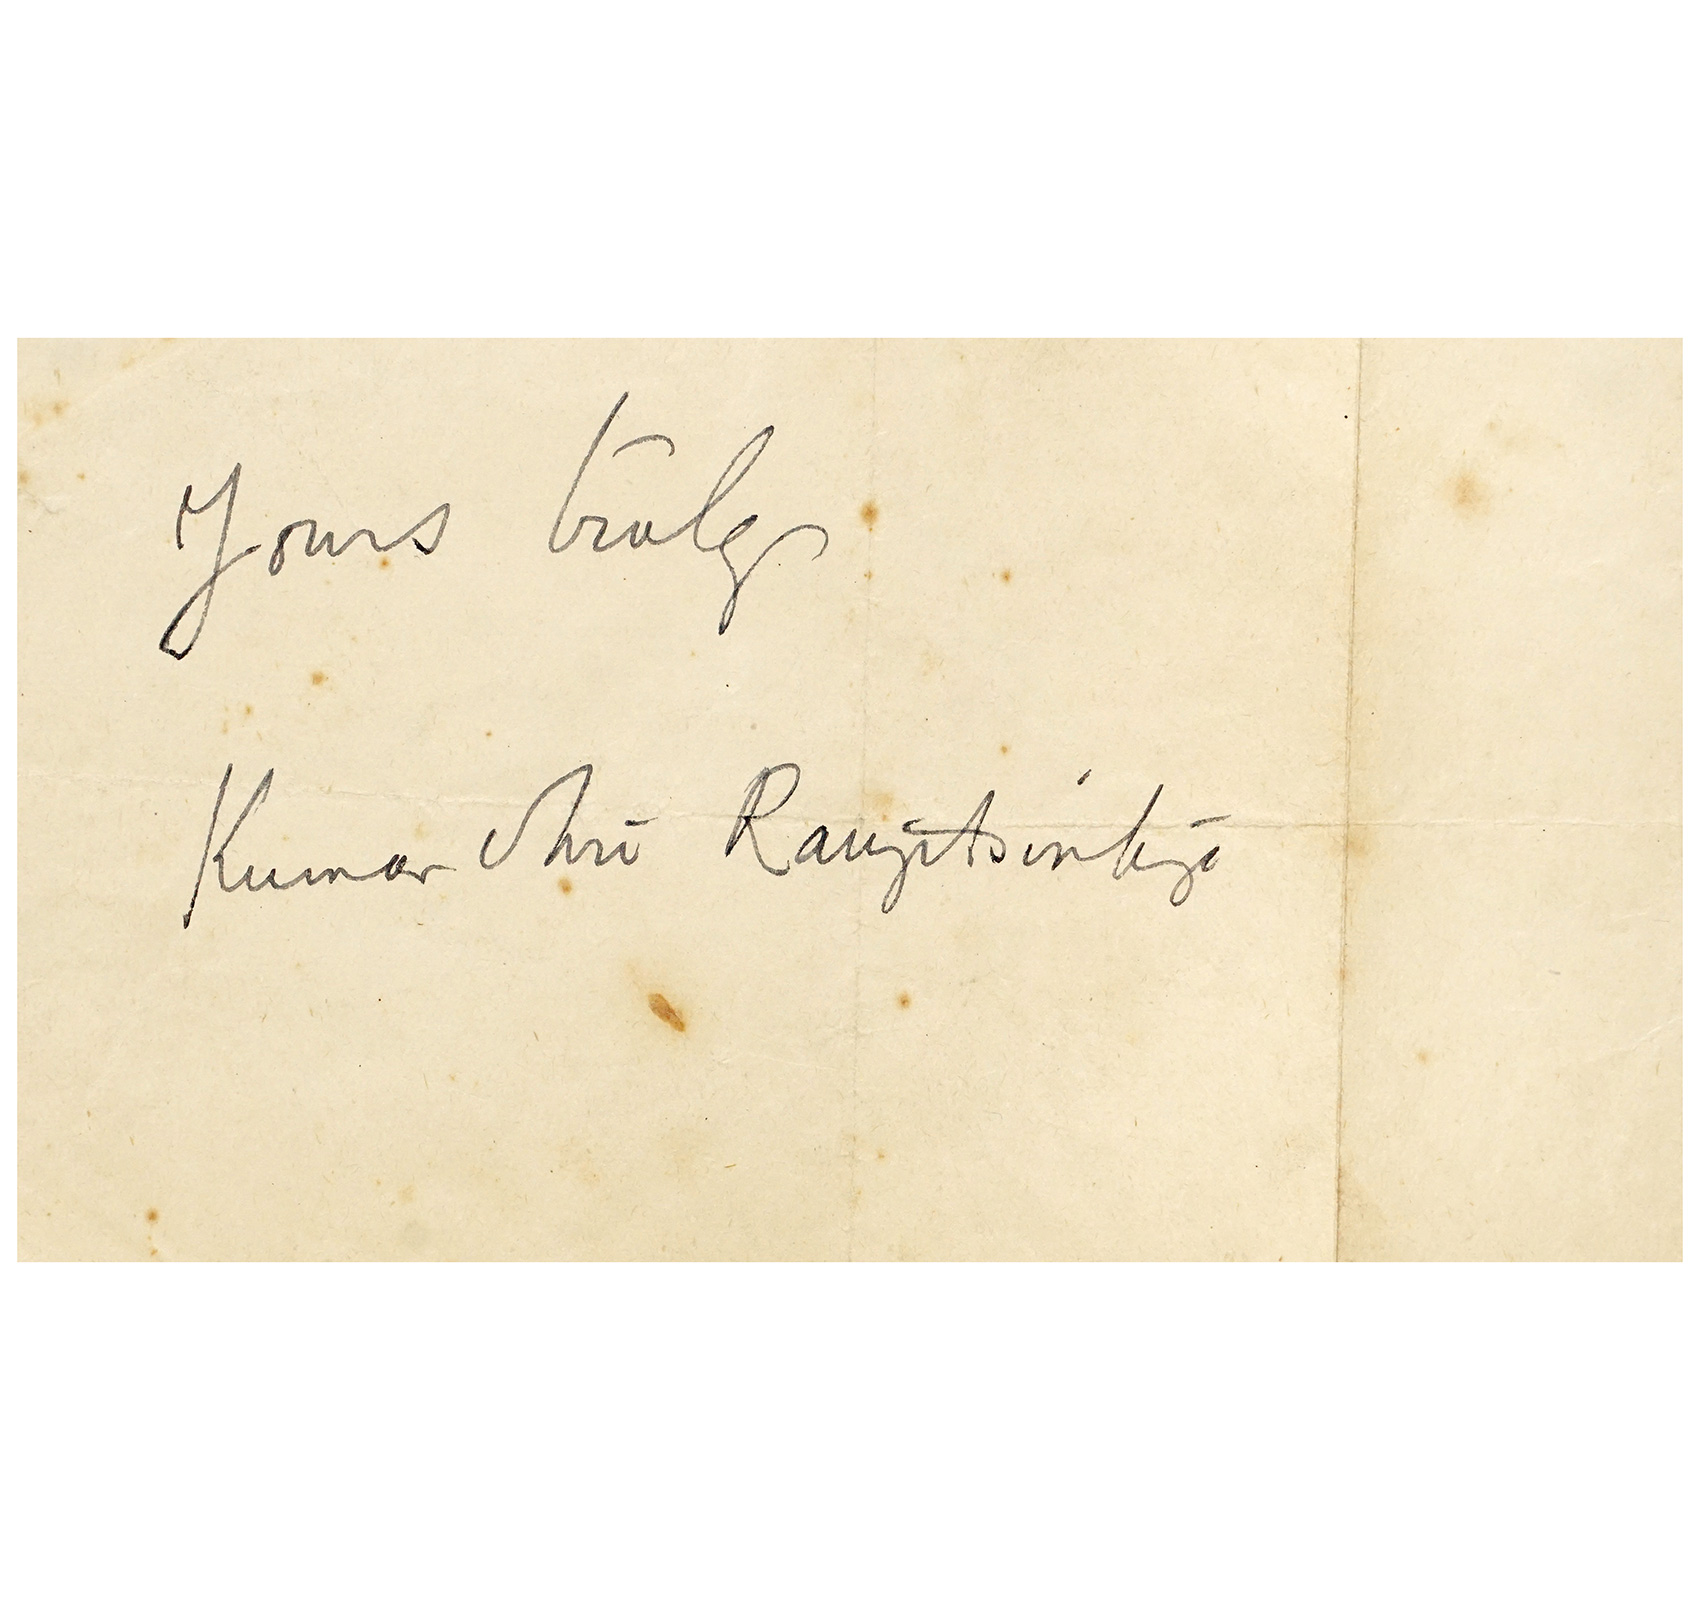 Yours truly
Kumar Shri Ranjitsinhji